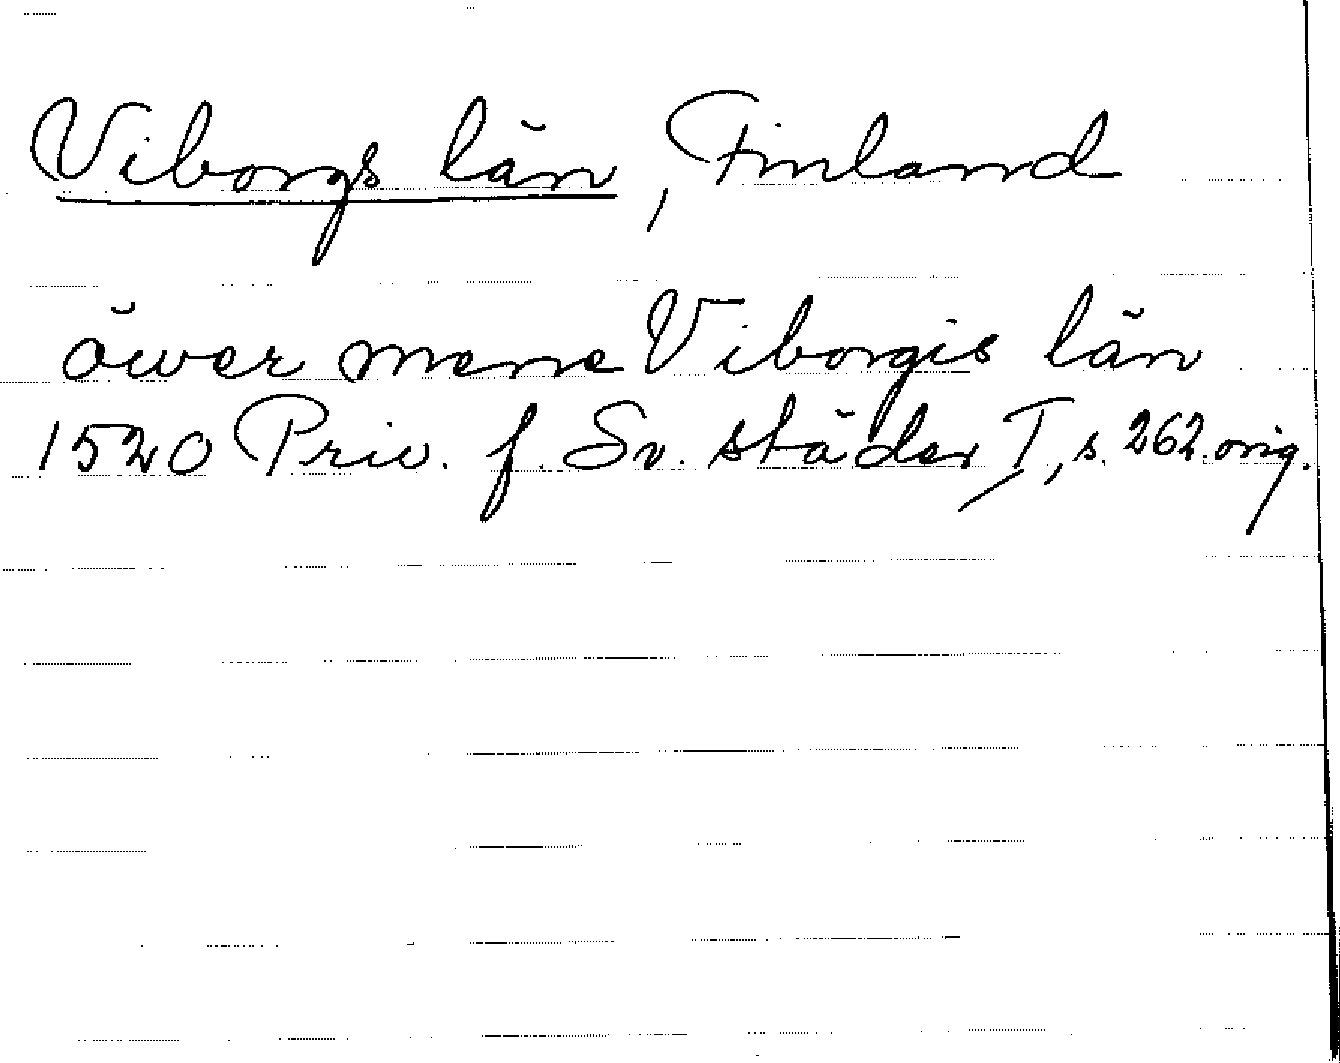 Viborgs län, Finland
öwer mene Viborgis län
1520 Priv. f. Sv. städer I, s. 262. orig.